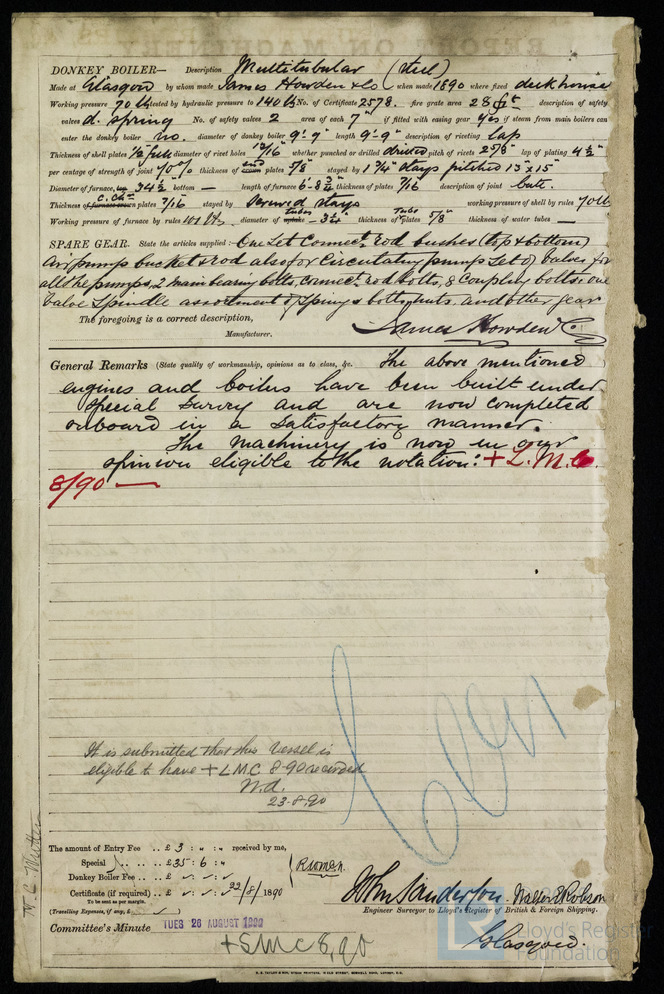 DONKEY BOILER— Description Multitubular (steel)
Made at Glasgow by whom made James Howden & Co when made 1890 where fixed deck house
Working pressure 70 lb tested by hydraulic pressure to 140 lb No. of Certificate 2578. fire grate area 28 ft² description of safety
valves d. spring No. of safety valves 2 area of each 7" if fitted with easing gear yes if steam from main boilers can
enter the donkey boiler no. diameter of donkey boiler 9'-9" length 9'-9" description of riveting lap
Thickness of shell plates 1/2 full diameter of rivet holes 13/16" whether punched or drilled drilled pitch of rivets 2 5/8" lap of plating 4 1/2"
per centage of strength of joint 70% thickness of end plates 5/8 stayed by 1 3/4" stays pitched 15" x 15"
Diameter of furnace, 34 1/2 bottom — length of furnace 6'-8 3/4 thickness of plates 7/16 description of joint butt.
Thickness of c. ch. plates 7/16 stayed by Screwed stays working pressure of shell by rules 70 lb
Working pressure of furnace by rules 101 lb. diameter of tubes 3 1/4" thickness of tube plates 5/8" thickness of water tubes —
SPARE GEAR. State the articles supplied:— One Set Connectg rod bushes (top & bottom)
Air pump bucket & rod also for Circulating pump Set of valves for
all the pumps, 2 main bearing bolts, connectg rod bolts, 8 Coupling bolts: one
Valve Spindle assortment of springs bolts, nuts. and other gear
The foregoing is a correct description,
James Howden & Co
Manufacturer.
General Remarks (State quality of workmanship, opinions as to class, &c. The above mentioned
engines and boilers have been built under
special survey and are now completed
onboard in a satisfactory manner.
The machinery is now in our
opinion eligible to the notation: + L.M.C.
8/90 —
It is submitted that this Vessel is
eligible to have + LMC 8-90 recorded
23-8-90
The amount of Entry Fee .. £ 3 : „ : „ received by me,
Special .. .. .. .. £ 35 : 6 : „
Donkey Boiler Fee .. .. £
Certificate (if required) .. £ 22/8/1890
To be sent as per margin.
(Travelling Expenses, if any, £
John Sanderson. Walter E Robson
Engineer Surveyor to Lloyd's Register of British & Foreign Shipping.
Committee's Minute TUES 26 AUGUST 1890
Glasgow.
+ LMC 8,90
Lloyd's Register
Foundation